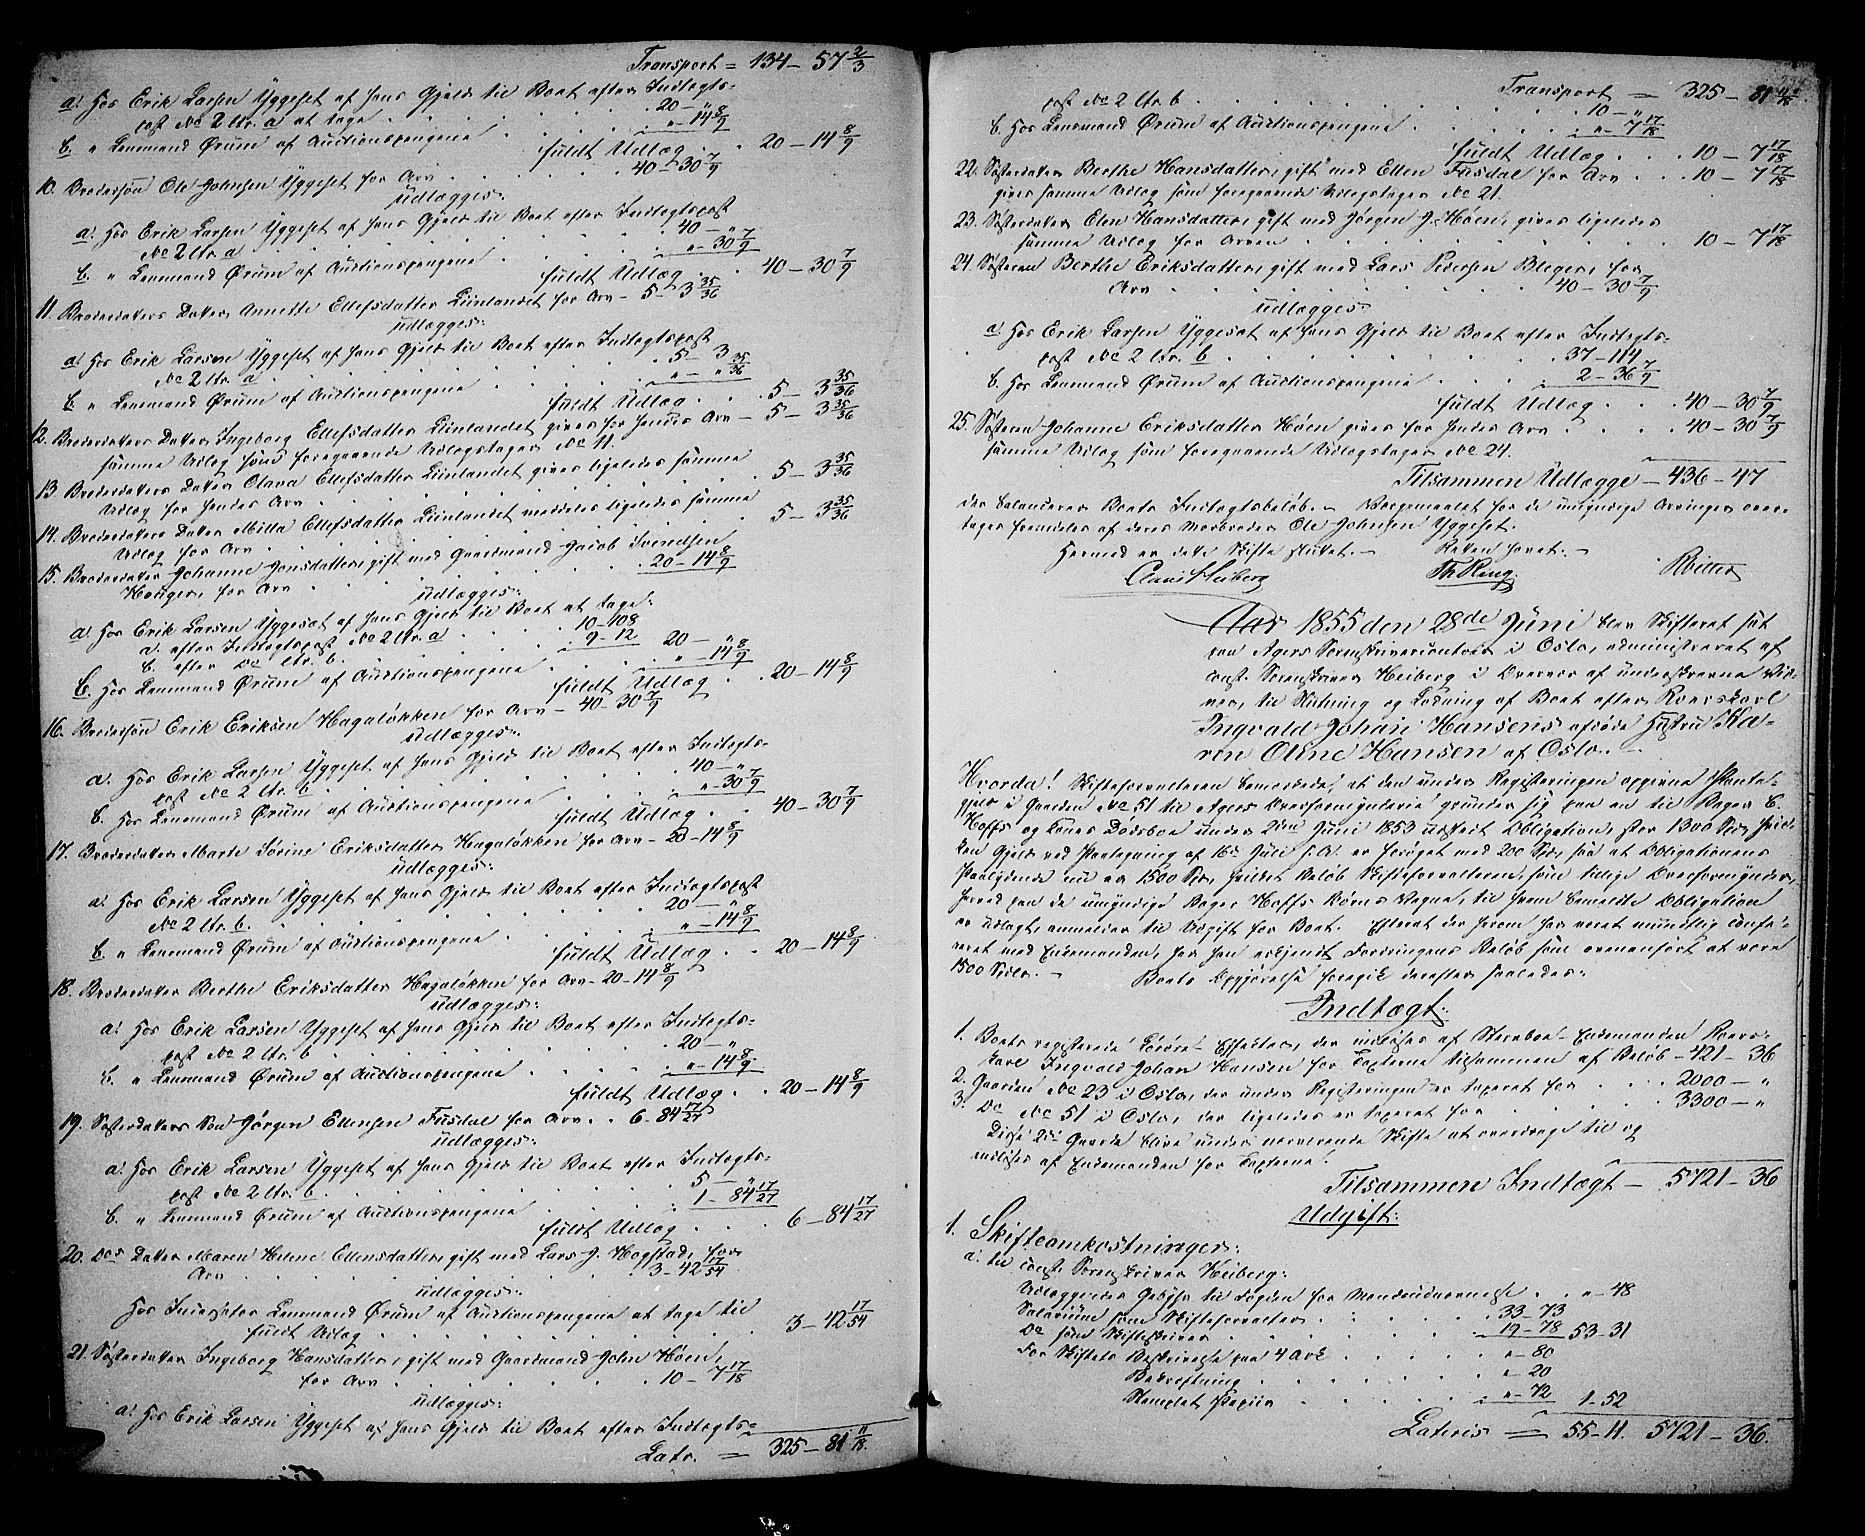 Transport = 134 – 57 2/3
a! Hos Erik Larsen Yggeset af hans Gjeld til Boet efter Indtægts-
post No 2 ltr. a at tage . . . 20 – "
b. " Lensmand Ørum af Auctionspengene . . . " – 14 8/9
fuldt Udlæg . . 20 – 14 8/9
10. Brodersøn Ole Johnsen Yggeset for Arv . . . 40 – 30 7/9
udlægges:
a! Hos Erik Larsen Yggeset af hans Gjeld til Boet efter Indtægtspost
No 2 ltr. a . . . 40 – "
b. " Lensmand Ørum af Auctionspengene . . . " – 30 7/9
fuldt Udlæg . . 40 – 30 7/9
11. Broderdatters Datter Annette Ellefsdatter Liinlandet for Arv – 5 – 3 35/36
udlægges:
a! Hos Erik Larsen Yggeset af hans Gjeld til Boet efter Indtægtspost
No 2 ltr. a . . . 5 – 3 35/36
b. " Lensmand Ørum af Auctionspengene . . . " – "
fuldt Udlæg . . 5 – 3 35/36
12. Broderdatters Datter Ingeborg Ellefsdatter Liinlandet gives for hendes Arv – 5 – 3 35/36
samme Udlæg som foregaaende Udlægstager No 11.
13. Broderdatters Datter Olava Ellefsdatter Liinlandet gives ligeledes samme
Udlæg for hendes Arv . . . 5 – 3 35/36
14. Broderdatters Datter Milla Ellefsdatter Liinlandet meddeles ligeledes samme
Udlæg for Arv . . . 5 – 3 35/36
15. Broderdatter Johanne Jonsdatter, gift med Gaardmand Jacob Svendsen
Hanger, for Arv . . . 20 – 14 8/9
udlægges:
a! Hos Erik Larsen Yggeset af hans Gjeld til Boet at tage:
a. efter Indtægtspost No 2 ltr. a . . . 10 – 108
b. efter Do ltr. b. . . . 9 – 12 20 – "
b. Hos Lensmand Ørum af Auctionspengene . . . " – 14 8/9
fuldt Udlæg . . 20 – 14 8/9
16. Brodersøn Erik Eriksen Hagaløkken for Arv – 40 – 30 7/9
udlægges:
a! Hos Erik Larsen Yggeset af hans Gjeld til Boet efter Indtægts-
post No 2 ltr. b . . . 40 – "
b. Hos Lensmand Ørum af Auctionspengene . . . " – 30 7/9
fuldt Udlæg . . 40 – 30 7/9
17. Broderdatter Marte Sørine Eriksdatter Hagaløkken for Arv – 20 – 14 8/9
udlægges:
a! Hos Erik Larsen Yggeset af hans Gjeld til Boet efter Indtægtspost
No 2 ltr. b. . . . 20 – "
b. " Lensmand Ørum af Auctionspengene . . . " – 14 8/9
fuldt Udlæg . . 20 – 14 8/9
18. Broderdatter Berthe Eriksdatter Hagaløkken for Arv – 20 – 14 8/9
udlægges:
a! Hos Erik Larsen Yggeset af hans Gjeld til Boet efter Indtægts-
post No 2 ltr. b . . . 20 – "
b. " Lensmand Ørum af Auctionspengene . . . " – 14 8/9
fuldt Udlæg . . 20 – 14 8/9
19. Søsterdatters Søn Jørgen Ellensen Fusdal for Arv . . 6 – 84 17/27
udlægges:
a! Hos Erik Larsen Yggeset af hans Gjeld til Boet efter Indtægts-
post No 2 ltr. b . . . 5 – "
b. " Lensmand Ørum af Auctionspengene . . . 1 – 84 17/27
fuldt Udlæg . . . 6 – 84 17/27
20. Des Datter Maren Helene Ellensdatter, gift med Lars J. Hogstad, for
Arv . . . 3 – 42 17/54
udlægges:
Hos Lensmand Ørum af Auctionspengene at tage til
fuldt Udlæg . . . 3 – 42 17/54
21. Søsterdatter Ingeborg Hansdatter, gift med Gaardmand John Høen,
for Arv . . . 10 – 7 17/18
udlægges:
a! Hos Erik Larsen Yggeset af hans Gjeld til Boet efter Indtægts-
Latr. = 325 – 81 11/18.
Transport = 325 – 81 11/18
post No 2 ltr. b . . . 10 – "
b. Hos Lensmand Ørum af Auctionspengene . . . " – 7 17/18
fuldt Udlæg . . . 10 – 7 17/18
22. Søsterdatter Berthe Hansdatter, gift med Ellen Fusdal for Arv . . . 10 – 7 17/18
gives samme Udlæg som foregaaende Udlægstager No 21.
23. Søsterdatter Elen Hansdatter, gift med Jørgen J. Høen, gives ligeledes
samme Udlæg for Arven . . . 10 – 7 17/18
24. Søsteren Berthe Eriksdatter, gift med Lars Pedersen Bleger, for
Arv . . . 40 – 30 7/9
udlægges
a! Hos Erik Larsen Yggeset af hans Gjeld til Boet efter Indtægts-
post No 2 ltr. b . . . 37 – 114
b. Hos Lensmand Ørum af Auctionspengene . . . 2 – 36 7/9
fuldt Udlæg . . . 40 – 30 7/9
25. Søsteren Johanne Eriksdatter Høen gives for hendes Arv . . . 40 – 30 7/9
samme Udlæg som foregaaende Udlægstager No 24.
Tilsammen Udlægge – 436 – 47
der balancerer Boets Indtægtsbeløb. – Værgemaalet for de umyndige Arvinger over-
tages fremdeles af deres Morbroder Ole Johnsen Yggeset.
Hermed er dette Skifte sluttet. – Retten hævet. –
Claus Heiberg Th Ring. Ritter
Aar 1855 den 28de Juni blev Skifteret sat
paa Agers Sorenskrivercontoir i Oslo, administreret af
const. Sorenskriver Heiberg i Overvær af underskrevne Vid-
ner, til Slutning og Lodning af Boet efter Roerskarl
Ingvald Johan Hansens afdøde Hustru Ka-
ren Oline Hansen af Oslo. –
Hvorda! Skifteforvalteren bemærkede, at den under Registeringen opgivne Pante-
gjeld i Gaarden No 51 til Agers Overformynderie grunder sig paa en til Bager C.
Hoffs og Kones Dødsboe under 2den Juni 1853 udstedt Obligation, stor 1300 Spd., hvil-
ken Gjeld ved Paategning af 16de Juni s. A. er forøget med 200 Spd., saa at Obligationens
Paalydende nu er 1500 Spd., hvilket Beløb Skifteforvalteren, som tillige Overformynder,
herved paa de umyndige Bager Hoffs Børns Vegne, til hvem bemeldte Obligation
er udlagt, anmelder til Udgift for Boet. Efterat der herom har været mundtlig confe-
reret med Enkemanden, har han erkjendt Fordringens Beløb som ovenanført at være
1500 Spdlr. – Boets Opgjørelse foregik derefter saaledes:
Indtægt:
1. Boets registerede Løsøre-Effecter, der indløses af Stervboe-Enkemanden Roers-
karl Ingvald Johan Hansen for Taxterne tilsammen af Beløb – 421 – 36
2. Gaarden No 23 i Oslo, der under Registeringen er taxeret for . . . 2000 – "
3. Do No 51 i Oslo, der ligeledes er taxeret for . . . 3300 – "
Disse 2de Gaarde blive under nærværende Skifte at overdrage til og
indløses af Enkemanden for Taxterne.
Tilsammen Indtægt – 5721 – 36
Udgift:
1. Skifteomkostninger:
a. til const. Sorenskriver Heiberg:
Udlæggende Gebyr til Fogden for Mandsudnævnelse . . " – 48
Salarium som Skifteforvalter . . . 33 – 73
Do som Skifteskriver . . . 19 – 78 53 – 31
For Skiftets Beskrivelse paa 4 Ark . . . " – 80
Bekræftning . . . " – 20
Stemplet Papiir . . . " – 72 1 – 52
Lateris = 55 – 11. 5721 – 36.